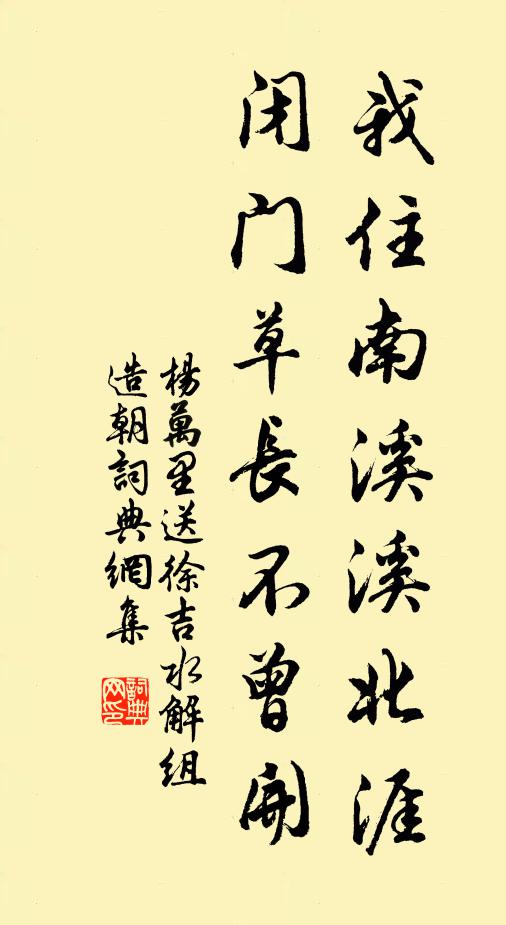 我住南溪溪北涯
闭门草長不曾開
楊萬里送徐吉水解組
造朝詞典網集
詞典网印